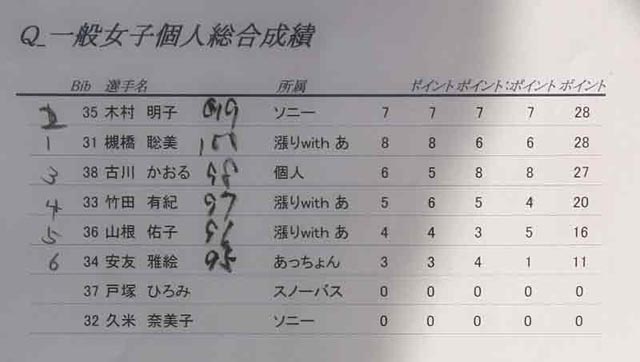 Q_一般女子個人総合成績
Bib 選手名 所属 ポイント ポイント ポイント ポイント
2 35 木村 明子 99 ソニー 7 7 7 7 28
1 31 槻橋 聡美 100 漲りwith あ 8 8 6 6 28
3 38 古川 かおる 98 個人 6 5 8 8 27
4 33 竹田 有紀 97 漲りwith あ 5 6 5 4 20
5 36 山根 佑子 96 漲りwith あ 4 4 3 5 16
6 34 安友 雅絵 95 あっちょん 3 3 4 1 11
37 戸塚 ひろみ スノーバス 0 0 0 0 0
32 久米 奈美子 ソニー 0 0 0 0 0